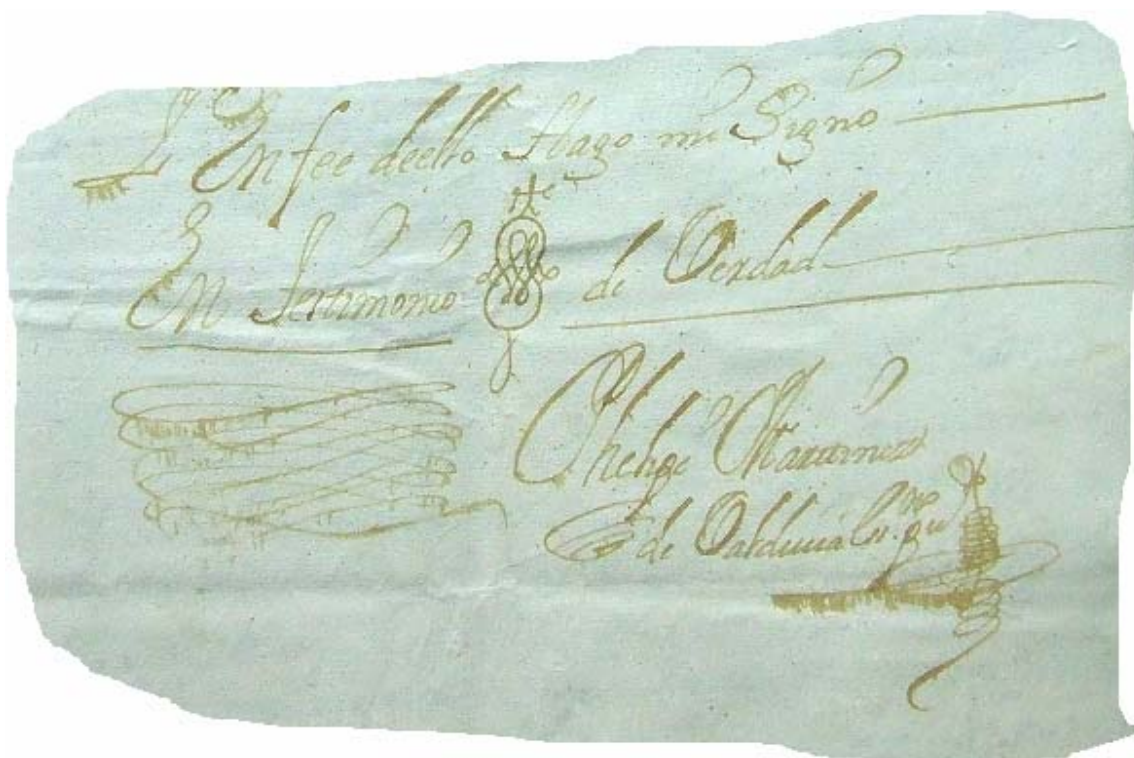 y En fee deello Hago mi Signo
En Testimonio de Verdad
Phelipe Martinez
de Valdivia